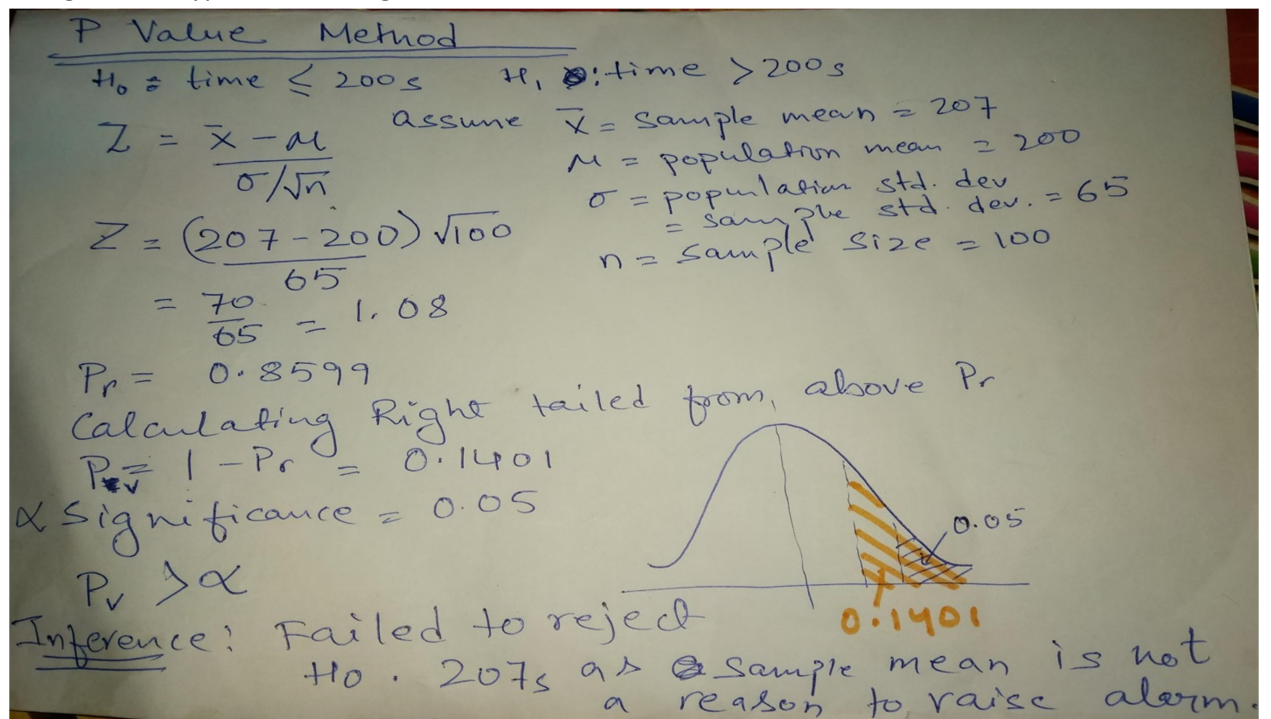 P Value Method
H₀ : time ≤ 200s H₁ : time > 200s
Z = x̄ - μ / σ/√n
assume x̄ = sample mean = 207
μ = population mean = 200
σ = population std. dev
= sample std. dev. = 65
n = sample size = 100
Z = (207-200) √100 / 65
= 70 / 65 = 1.08
Pr = 0.8599
Calculating Right tailed from, above Pr
Pv = 1 - Pr = 0.1401
α Significance = 0.05
Pv > α
0.05
0.1401
Inference: Failed to reject
H₀. 207s as sample mean is not
a reason to raise alarm.